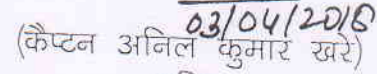 03/04/2018
(कैप्टन अनिल कुमार खरे)